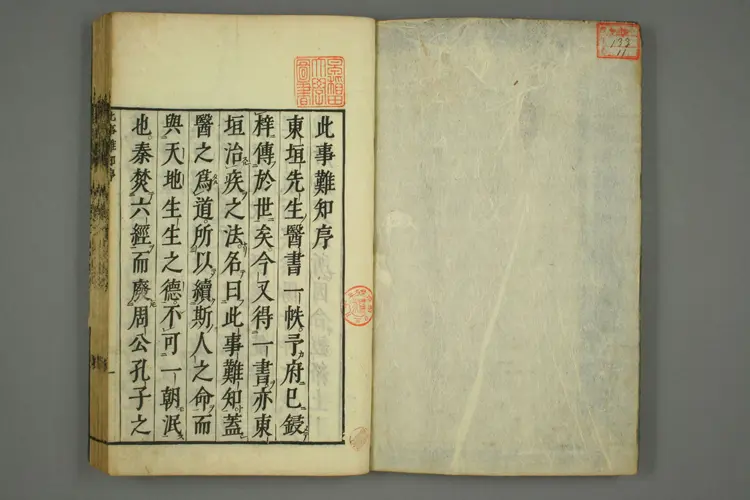 此事難知序
東垣先生醫書一帙予府已鋟
梓傳於世矣今又得一書亦東
垣治疾之法名曰此事難知蓋
醫之爲道所以續斯人之命而
與天地生生之德不可一朝泯
也秦焚六經而廢周公孔子之